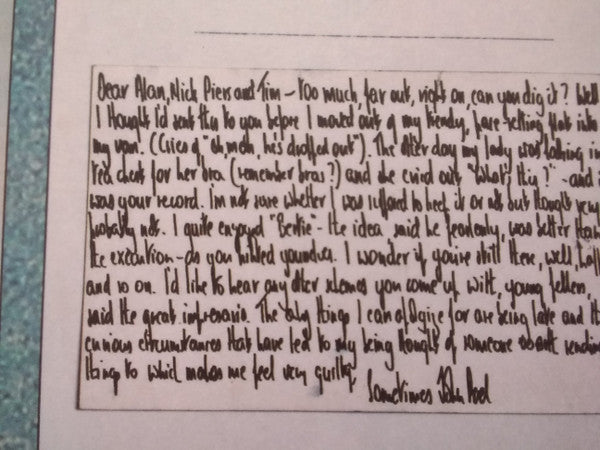 Dear Alan, Nick Piers and Tim – too much, far out, right on, can you dig it? Well
I thought I'd sent this to you before I moved out of my trendy, pace-setting flat into
my van. (Cries of "oh man, he's dropped out"). The other day my lady was looking in
tea chest for her bra (remember bras?) and she cried out "What's this?" – and i
was your record. I'm not sure whether I was supposed to keep it or not but thought very
probably not. I quite enjoyed "Bertie" – the idea said he fearlessly, was better than
the execution – do you nibbled yourselves. I wonder if you're still there, well,
and so on. I'd like to hear any other schemes you come up with, young fellers,
said the great impresario. The only things I can apologise for are being late and th
curious circumstances that have led to my being thought of someone worth sending
things to which makes me feel very guilty.
Sometimes John Peel